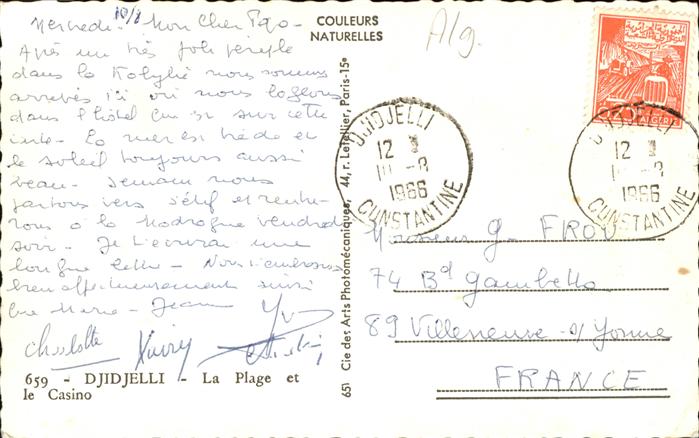 Mercredi 10/8 Mon Cher Pgo -
Après un très joli périple
dans la Kabylie nous sommes
arrivés ici où nous logeons
dans l'hôtel qui est sur cette
- La mer est tiède et
le soleil toujours aussi
beau - Demain nous
partons vers Sétif et rentre-
rons à la Madrague vendredi
soir - Je t'écrirai une
longue lettre - Nous t'embrassons
bien affectueusement
Marie - Jeanne Yv
Charlotte
659 - DJIDJELLI - La Plage et
le Casino
COULEURS
NATURELLES
Alg.
651 Cie des Arts Photomécaniques, 44, r. Letellier, Paris-15e
ALGERIE
DJIDJELLI
12 H
10 -8
1966
CONSTANTINE
DJIDJELLI
12 H
10 -8
1966
CONSTANTINE
Monsieur G. FROU
74 Bd Gambetta
89 Villeneuve -s/Yonne
FRANCE